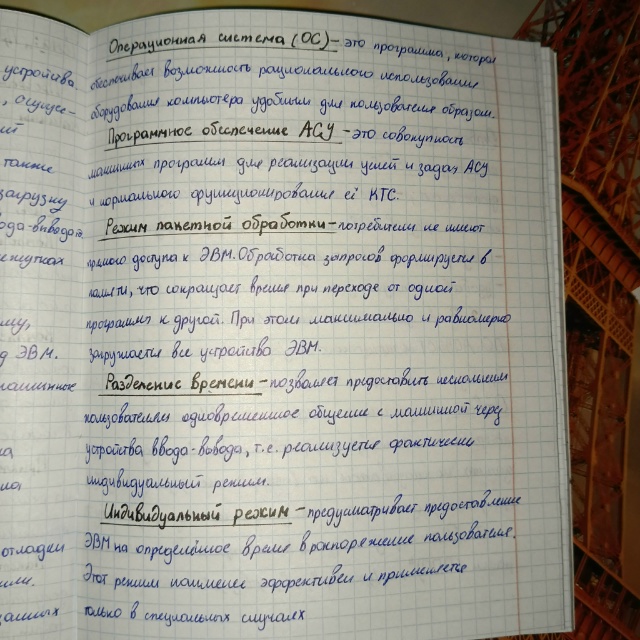 Операционная система (ОС) – это программа, которая
обеспечивает возможность рационального использования
оборудования компьютера удобным для пользователя образом.
Программное обеспечение АСУ – это совокупность
машинных программ для реализации целей и задач АСУ
и нормального функционирования её КТС.
Режим пакетной обработки – потребители не имеют
прямого доступа к ЭВМ. Обработка запросов формируется в
памяти, что сокращает время при переходе от одной
программы к другой. При этом максимально и равномерно
загружается все устройства ЭВМ.
Разделение времени – позволяет предоставить нескольким
пользователям одновременное общение с машиной через
устройства ввода-вывода, т.е. реализуется фактически
индивидуальный режим.
Индивидуальный режим – предусматривает предоставление
ЭВМ на определённое время в распоряжение пользователя.
Этот режим наименее эффективен и применяется
только в специальных случаях
устройства
также
загрузку
ввода-вывода.
ЭВМ.
отладки